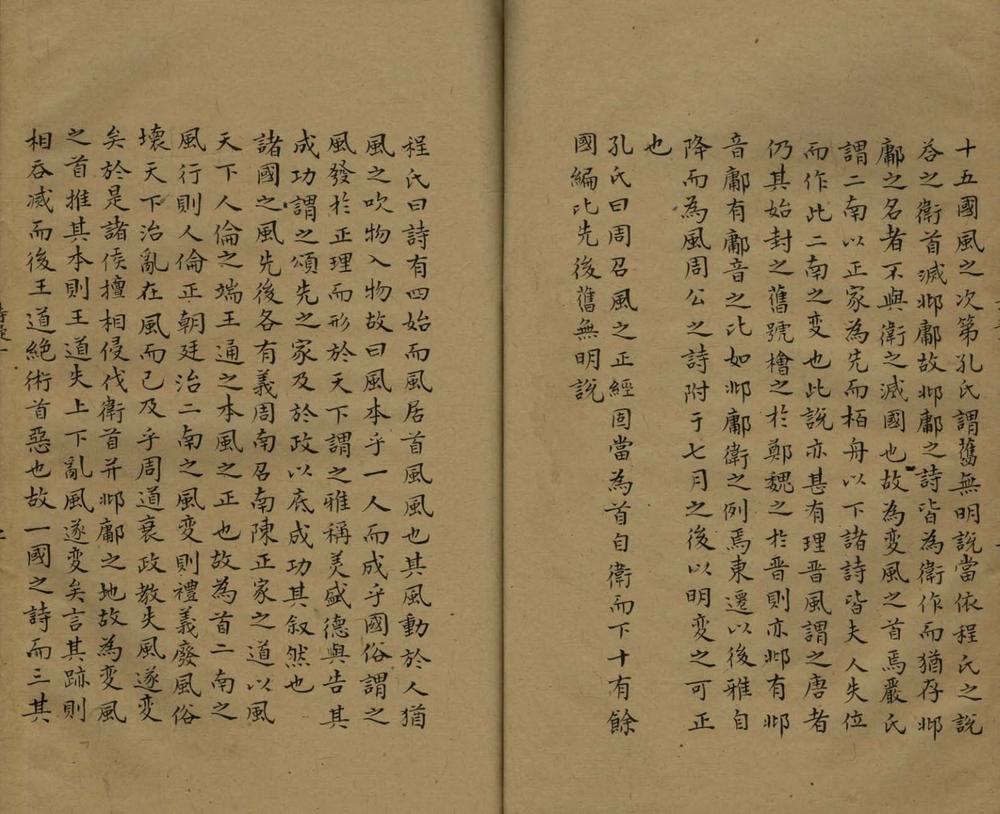 十五國風之次第孔氏謂舊無明說當依程氏之說
咎之衛首滅邶鄘故邶鄘之詩皆為衛作而猶存邶
鄘之名者不與衛之滅國也故為変風之首焉嚴氏
謂二南以正家為先而栢舟以下諸詩皆夫人失位
而作此二南之変也此說亦甚有理晋風謂之唐者
仍其始封之舊號檜之於鄭魏之於晋則亦邶有邶
音鄘有鄘音之比如邶鄘衛之例焉東遷以後雅自
降而為風周公之詩附于七月之後以明変之可正
也
孔氏曰周召風之正經固當為首自衛而下十有餘
國編比先後舊無明說
程氏曰詩有四始而風居首風風也其風動於人猶
風之吹物入物故曰風本乎一人而成乎國俗謂之
風發於正理而形於天下謂之雅稱美盛德與告其
成功謂之頌先之家及於政以底成功其叙然也
諸國之風先後各有義周南召南陳正家之道以風
天下人倫之端王通之本風之正也故為首二南之
風行則人倫正朝廷治二南之風変則禮義廢風俗
壞天下治亂在風而已及乎周道衰政教失風遂変
矣於是諸侯擅相侵伐衛首并邶鄘之地故為変風
之首推其本則王道失上下亂風遂変矣言其跡則
相吞滅而後王道絶術首惡也故一國之詩而三其